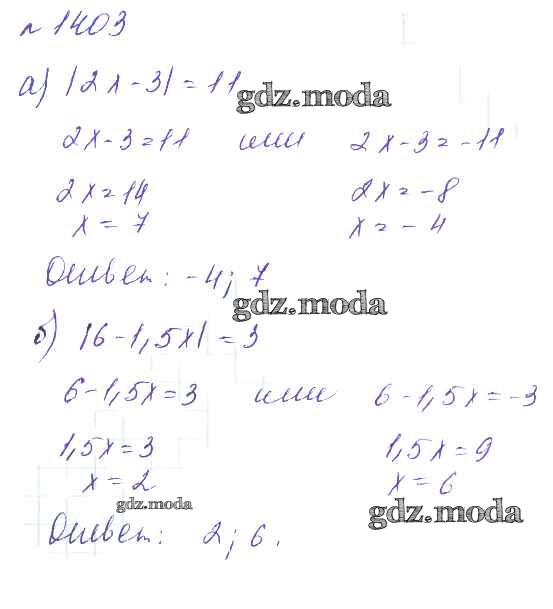 № 1403
а) |2x-3| = 11
gdz.moda
2x-3=11 или 2x-3=-11
2x=14 2x=-8
x=7 x=-4
Ответ: -4; 7
gdz.moda
б) |6-1,5x| = 3
6-1,5x=3 или 6-1,5x=-3
1,5x=3 1,5x=9
x=2 x=6
gdz.moda
gdz.moda
Ответ: 2; 6.